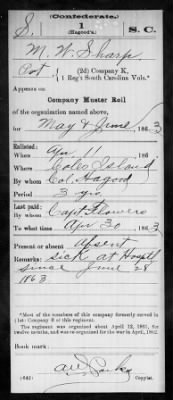 (Confederate.)
S. 1 S. C.
(Hagood's)
M. W. Sharp
Pvt, (2d) Company K,
1 Reg't South Carolina Vols.*
Appears on
Company Muster Roll
of the organization named above,
for May & June, 1863.
Enlisted:
When Apr 11, 186
Where Coles Island
By whom Col. Hagood
Period 3 yrs
Last paid:
By whom Capt Flowers
To what time Apr 30, 1863
Present or absent Absent
Remarks: sick at Hospt'l
since June 28
1863
*Most of the members of this company formerly served in
1st Company of this regiment.
The regiment was organized about April 12, 1861, for
twelve months, and was re-organized for the war in April, 1862.
Book mark:
(642) Copyist.